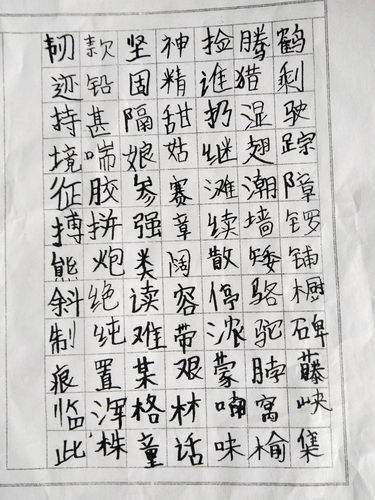 韧款坚神捡腾鹤
迹铅固精谁猎剩
持甚隔甜扔湿驶
境喘娘姑继翅踪
征胶参赛滩潮障
搏拼强章续墙锣
能炮类阔散矮铺
斜绝读容停骆橱
制纯难带浓驼碑
痕置某艰蒙脖藤
临浑格林喃窝峡
此株童话味愉集